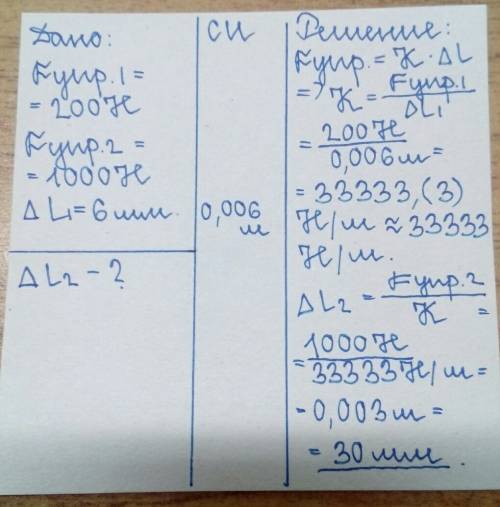 Дано:
Fупр.1 =
= 200Н
Fупр.2 =
= 1000Н
ΔL1 = 6 мм.
ΔL2 - ?
СИ
0,006
м
Решение:
Fупр. = К · ΔL
=> К = Fупр.1 / ΔL1
= 200Н / 0,006 м =
= 33333,(3)
Н/м ≈ 33333
Н/м.
ΔL2 = Fупр.2 / К =
= 1000Н / 33333Н/м =
- 0,003 м =
= 30 мм.